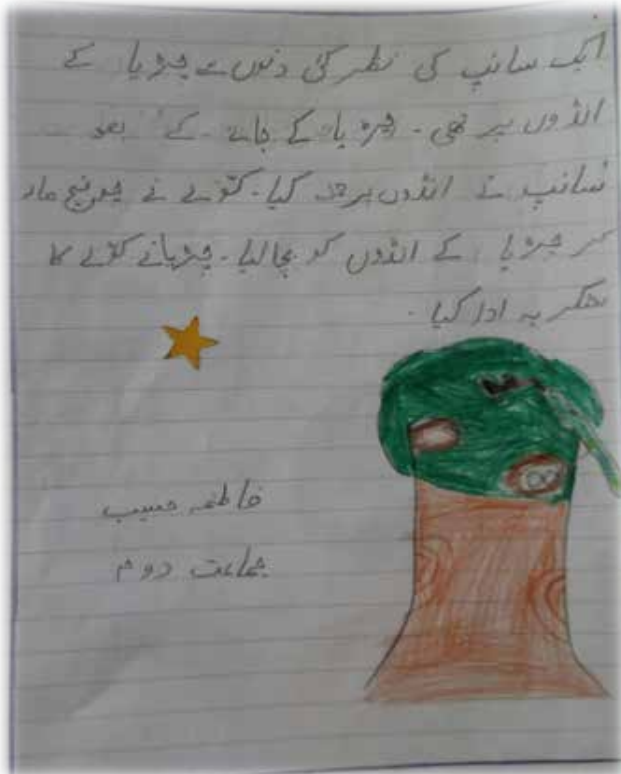 ایک سانپ کی نظر کئی دنوں سے چڑیا کے
انڈوں پر تھی۔ چڑیا کے جانے کے بعد
سانپ نے انڈوں پر حملہ کیا۔ کوّے نے چونچ مار
کر چڑیا کے انڈوں کو بچالیا۔ چڑیانے کوّے کا
شکریہ ادا کیا۔
فاطمہ حسیب
جماعت دوم